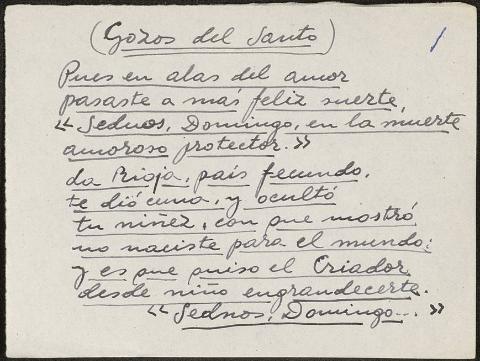 (Gozos del Santo)
1
Pues en alas del amor
pasaste a más feliz suerte,
"Sednos, Domingo, en la muerte
amoroso protector."
La Rioja, país fecundo,
te dió cuna, y ocultó
tu niñez, con que mostró
no naciste para el mundo:
y es que quiso el Criador
desde niño engrandecerte.
"Sednos, Domingo... "